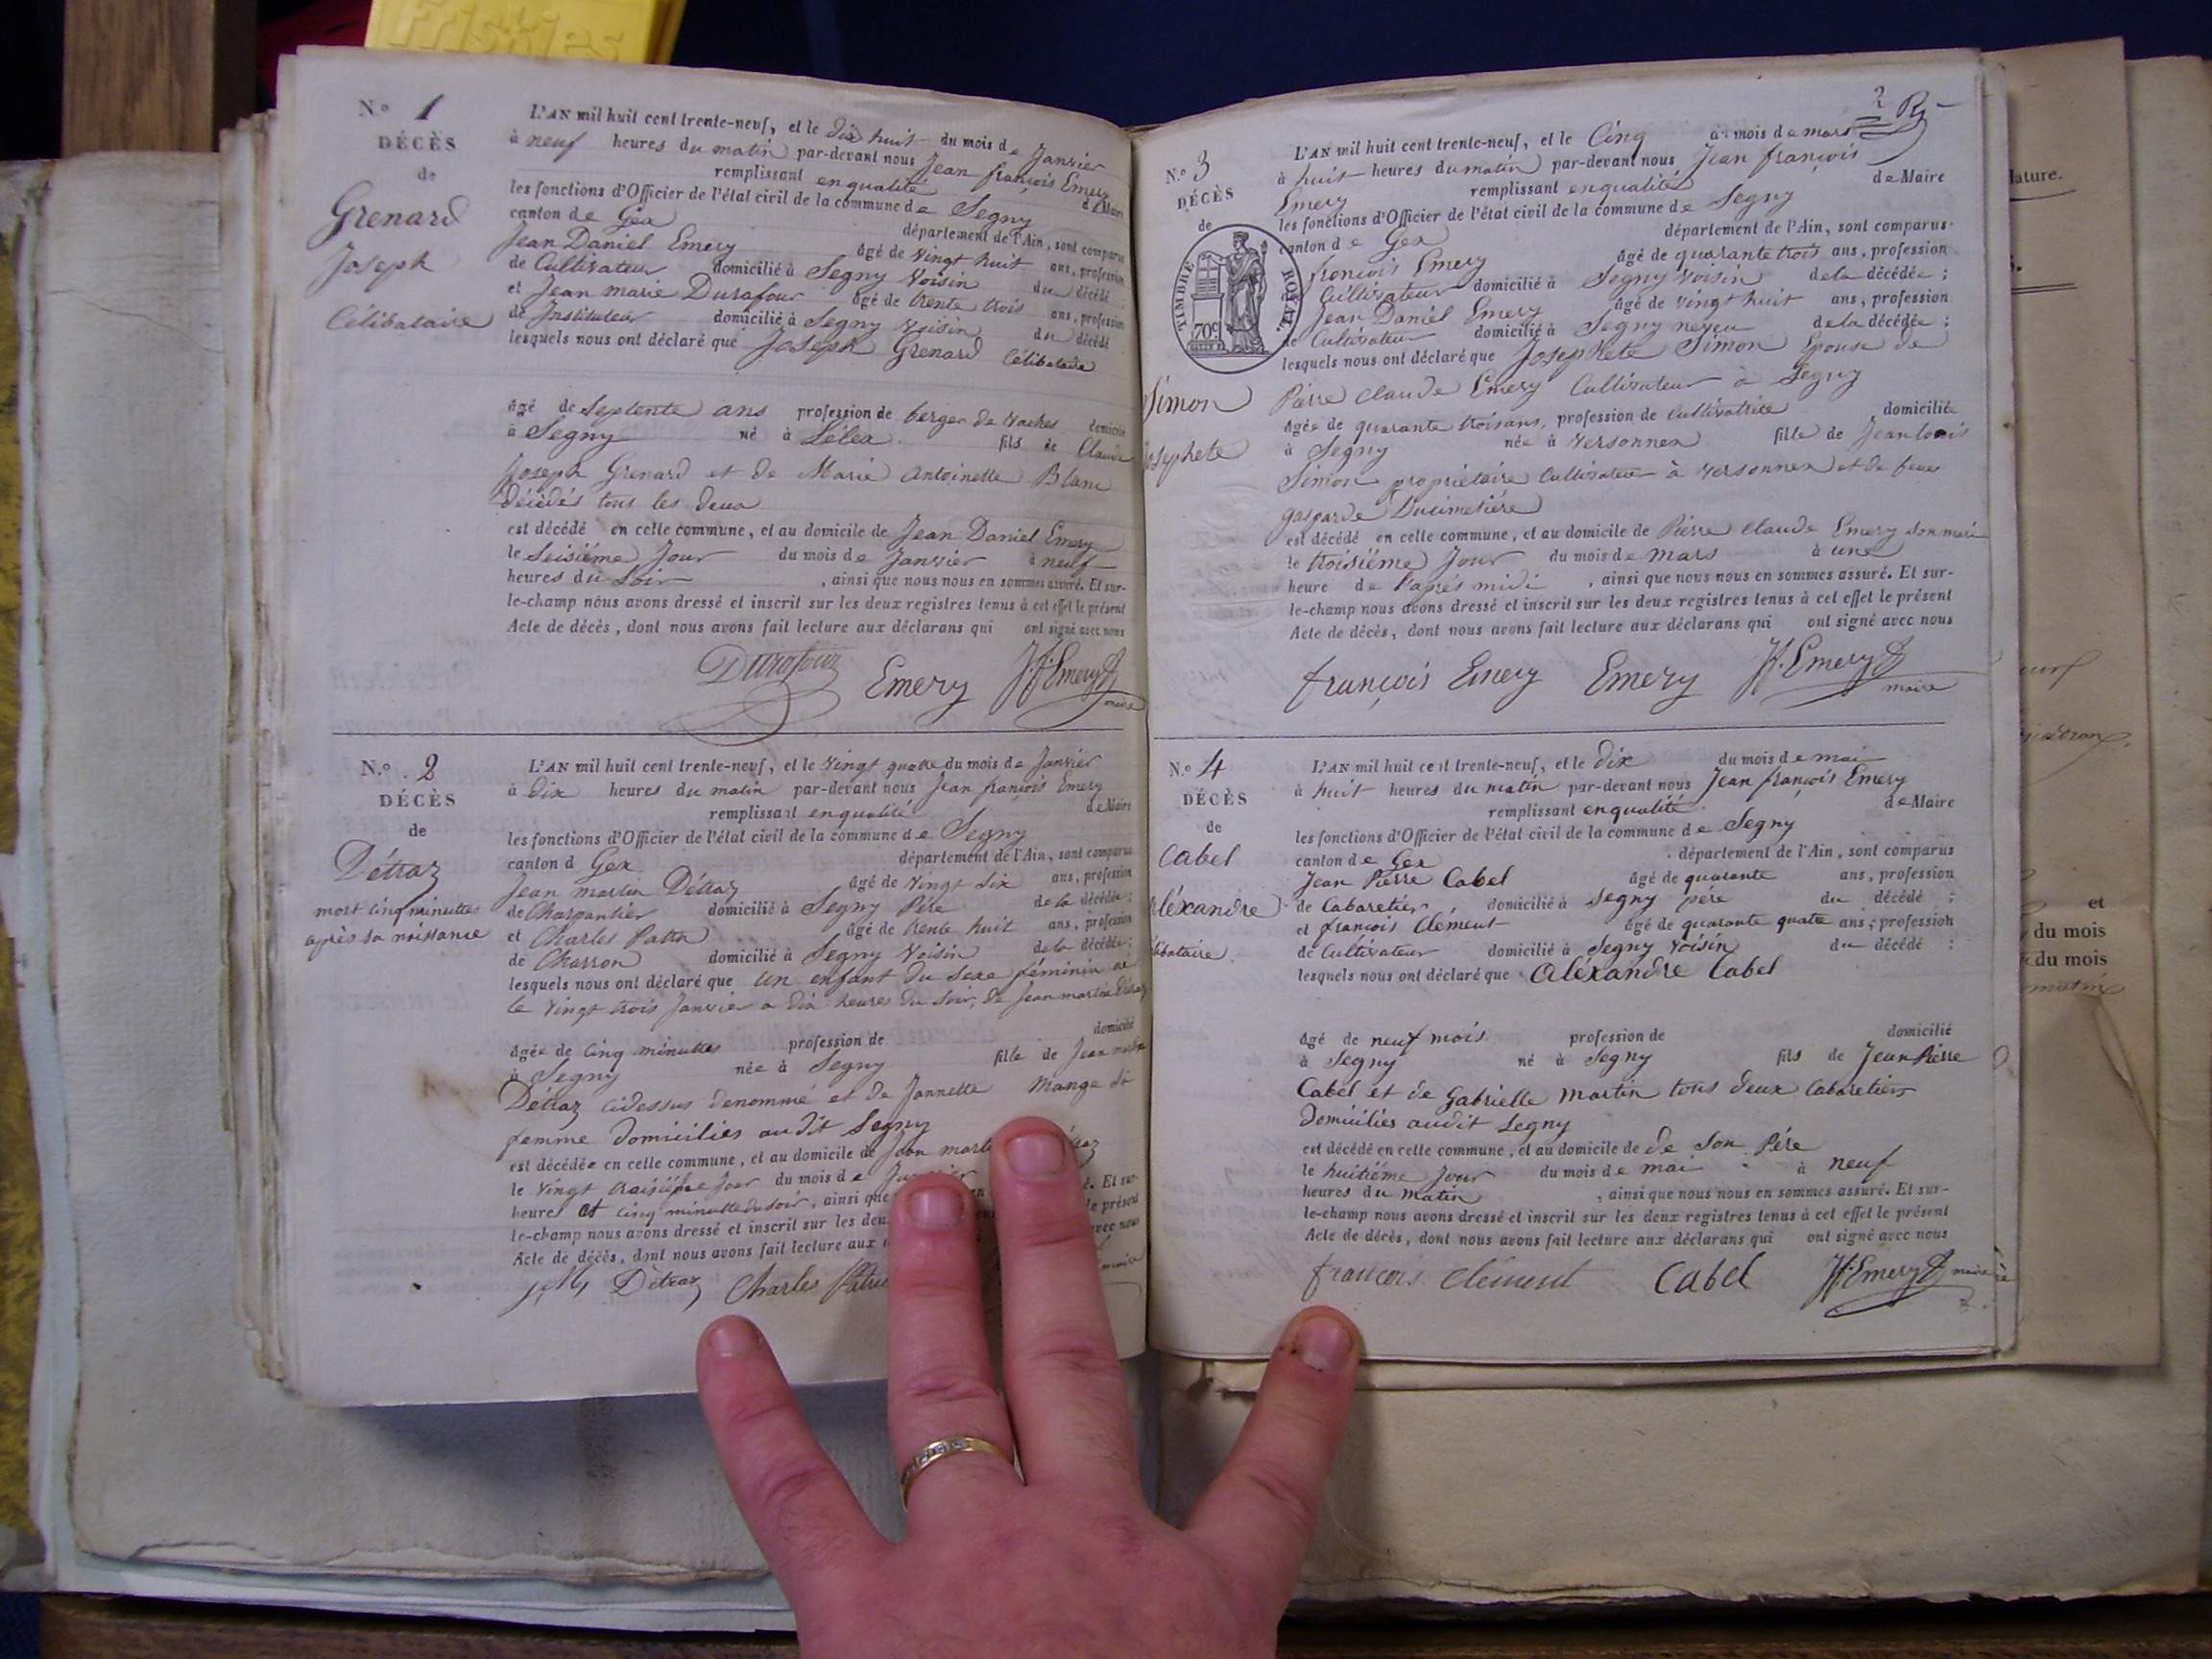 Friskies
N.º 1
DÉCÈS
de
Grenard
Joseph
Célibataire
L'AN mil huit cent trente-neuf, et le dix huit du mois de Janvier
à neuf heures du matin par-devant nous Jean françois Emery
remplissant en qualité de Maire
les fonctions d'Officier de l'état civil de la commune de Segny
canton de Gex département de l'Ain, sont comparus
Jean Daniel Emery âgé de vingt huit ans, profession
de Cultivateur domicilié à Segny Voisin du décédé
et Jean marie Durafour âgé de trente trois ans, profession
de Instituteur domicilié à Segny voisin du décédé
lesquels nous ont déclaré que Joseph Grenard Célibataire
âgé de Septente ans profession de berger de vaches domicilié
à Segny né à Lélex fils de Claude
Joseph Grenard et de Marie Antoinette Blanc
décédés tous les deux
est décédé en cette commune, et au domicile de Jean Daniel Emery
le Seisième Jour du mois de Janvier à neuf
heures du Soir, ainsi que nous nous en sommes assuré. Et sur-
le-champ nous avons dressé et inscrit sur les deux registres tenus à cet effet le présent
Acte de décès, dont nous avons fait lecture aux déclarans qui ont signé avec nous
Durafour Emery J.f. Emery
maire
N.º 2
DÉCÈS
de
Détraz
mort cinq minuttes
après sa naissance
L'AN mil huit cent trente-neuf, et le vingt quatre du mois de Janvier
à dix heures du matin par-devant nous Jean françois Emery
remplissant en qualité de Maire
les fonctions d'Officier de l'état civil de la commune de Segny
canton d Gex département de l'Ain, sont comparus
Jean martin Détraz âgé de vingt six ans, profession
de Charpantier domicilié à Segny Père de la décédée;
et Charles âgé de trente huit ans, profession
de Charron domicilié à Segny Voisin de la décédée;
lesquels nous ont déclaré que un enfant du sexe féminin né
le vingt trois Janvier a dix heures du soir, de Jean martin Détraz
âgée de cinq minuttes profession de domicilié
à Segny née à Segny fille de Jean martin
Détraz cidessus denommé et de Jannette Mange sa
femme domiciliés audit Segny
est décédée en cette commune, et au domicile de Jean
le vingt troisième Jour du mois de
heures et cinq minuttes du soir, ainsi que en Et sur-
le-champ nous avons dressé et inscrit sur les le présent
Acte de décès, dont nous avons fait lecture aux avec nous
J M Détraz Charles
maire
2
N.º 3
DÉCÈS
de
TIMBRE ROYAL
70c
Simon
Josephete
L'AN mil huit cent trente-neuf, et le Cinq du mois de mars
à huit heures du matin par-devant nous Jean françois
Emery remplissant en qualité de Maire
les fonctions d'Officier de l'état civil de la commune de Segny
canton de Gex département de l'Ain, sont comparus
françois Emery âgé de quarante trois ans, profession
de Cultivateur domicilié à Segny voisin de la décédée;
Jean Daniel Emery âgé de vingt huit ans, profession
de Cultivateur domicilié à Segny neveu de la décédée;
lesquels nous ont déclaré que Josephete Simon Epouse de
Pierre claude Emery Cultivateur à Segny
âgée de quarante trois ans, profession de Cultivatrice, domicilié
à Segny née à Versonnex fille de Jean louis
Simon propriétaire Cultivateur à Versonnex et de feue
gasparde Ducimetière
est décédé en cette commune, et au domicile de Pierre claude Emery son mari
le troisième Jour du mois de mars à une
heure de l'après midi, ainsi que nous nous en sommes assuré. Et sur-
le-champ nous avons dressé et inscrit sur les deux registres tenus à cet effet le présent
Acte de décès, dont nous avons fait lecture aux déclarans qui ont signé avec nous
françois Emery Emery J.f. Emery
maire
N.º 4
DÉCÈS
de
Cabel
Aléxandre
Célibataire
L'AN mil huit cent trente-neuf, et le dix du mois de mai
à huit heures du matin par-devant nous Jean françois Emery
remplissant en qualité de Maire
les fonctions d'Officier de l'état civil de la commune de Segny
canton de Gex département de l'Ain, sont comparus
Jean Pierre Cabel âgé de quarante ans, profession
de Cabaretier, domicilié à Segny père du décédé;
et françois Clément âgé de quarante quatre ans, profession
de Cultivateur domicilié à Segny voisin du décédé;
lesquels nous ont déclaré que Aléxandre Cabel
âgé de neuf mois profession de domicilié
à Segny né à Segny fils de Jean Pierre
Cabel et de Gabrielle Martin tous deux Cabaretiers
domiciliés audit Segny
est décédé en cette commune, et au domicile de de Son Père
le huitième Jour du mois de mai à neuf
heures du matin, ainsi que nous nous en sommes assuré. Et sur-
le-champ nous avons dressé et inscrit sur les deux registres tenus à cet effet le présent
Acte de décès, dont nous avons fait lecture aux déclarans qui ont signé avec nous
françois clément Cabel J.f. Emery maire
et
du mois
du mois
matin